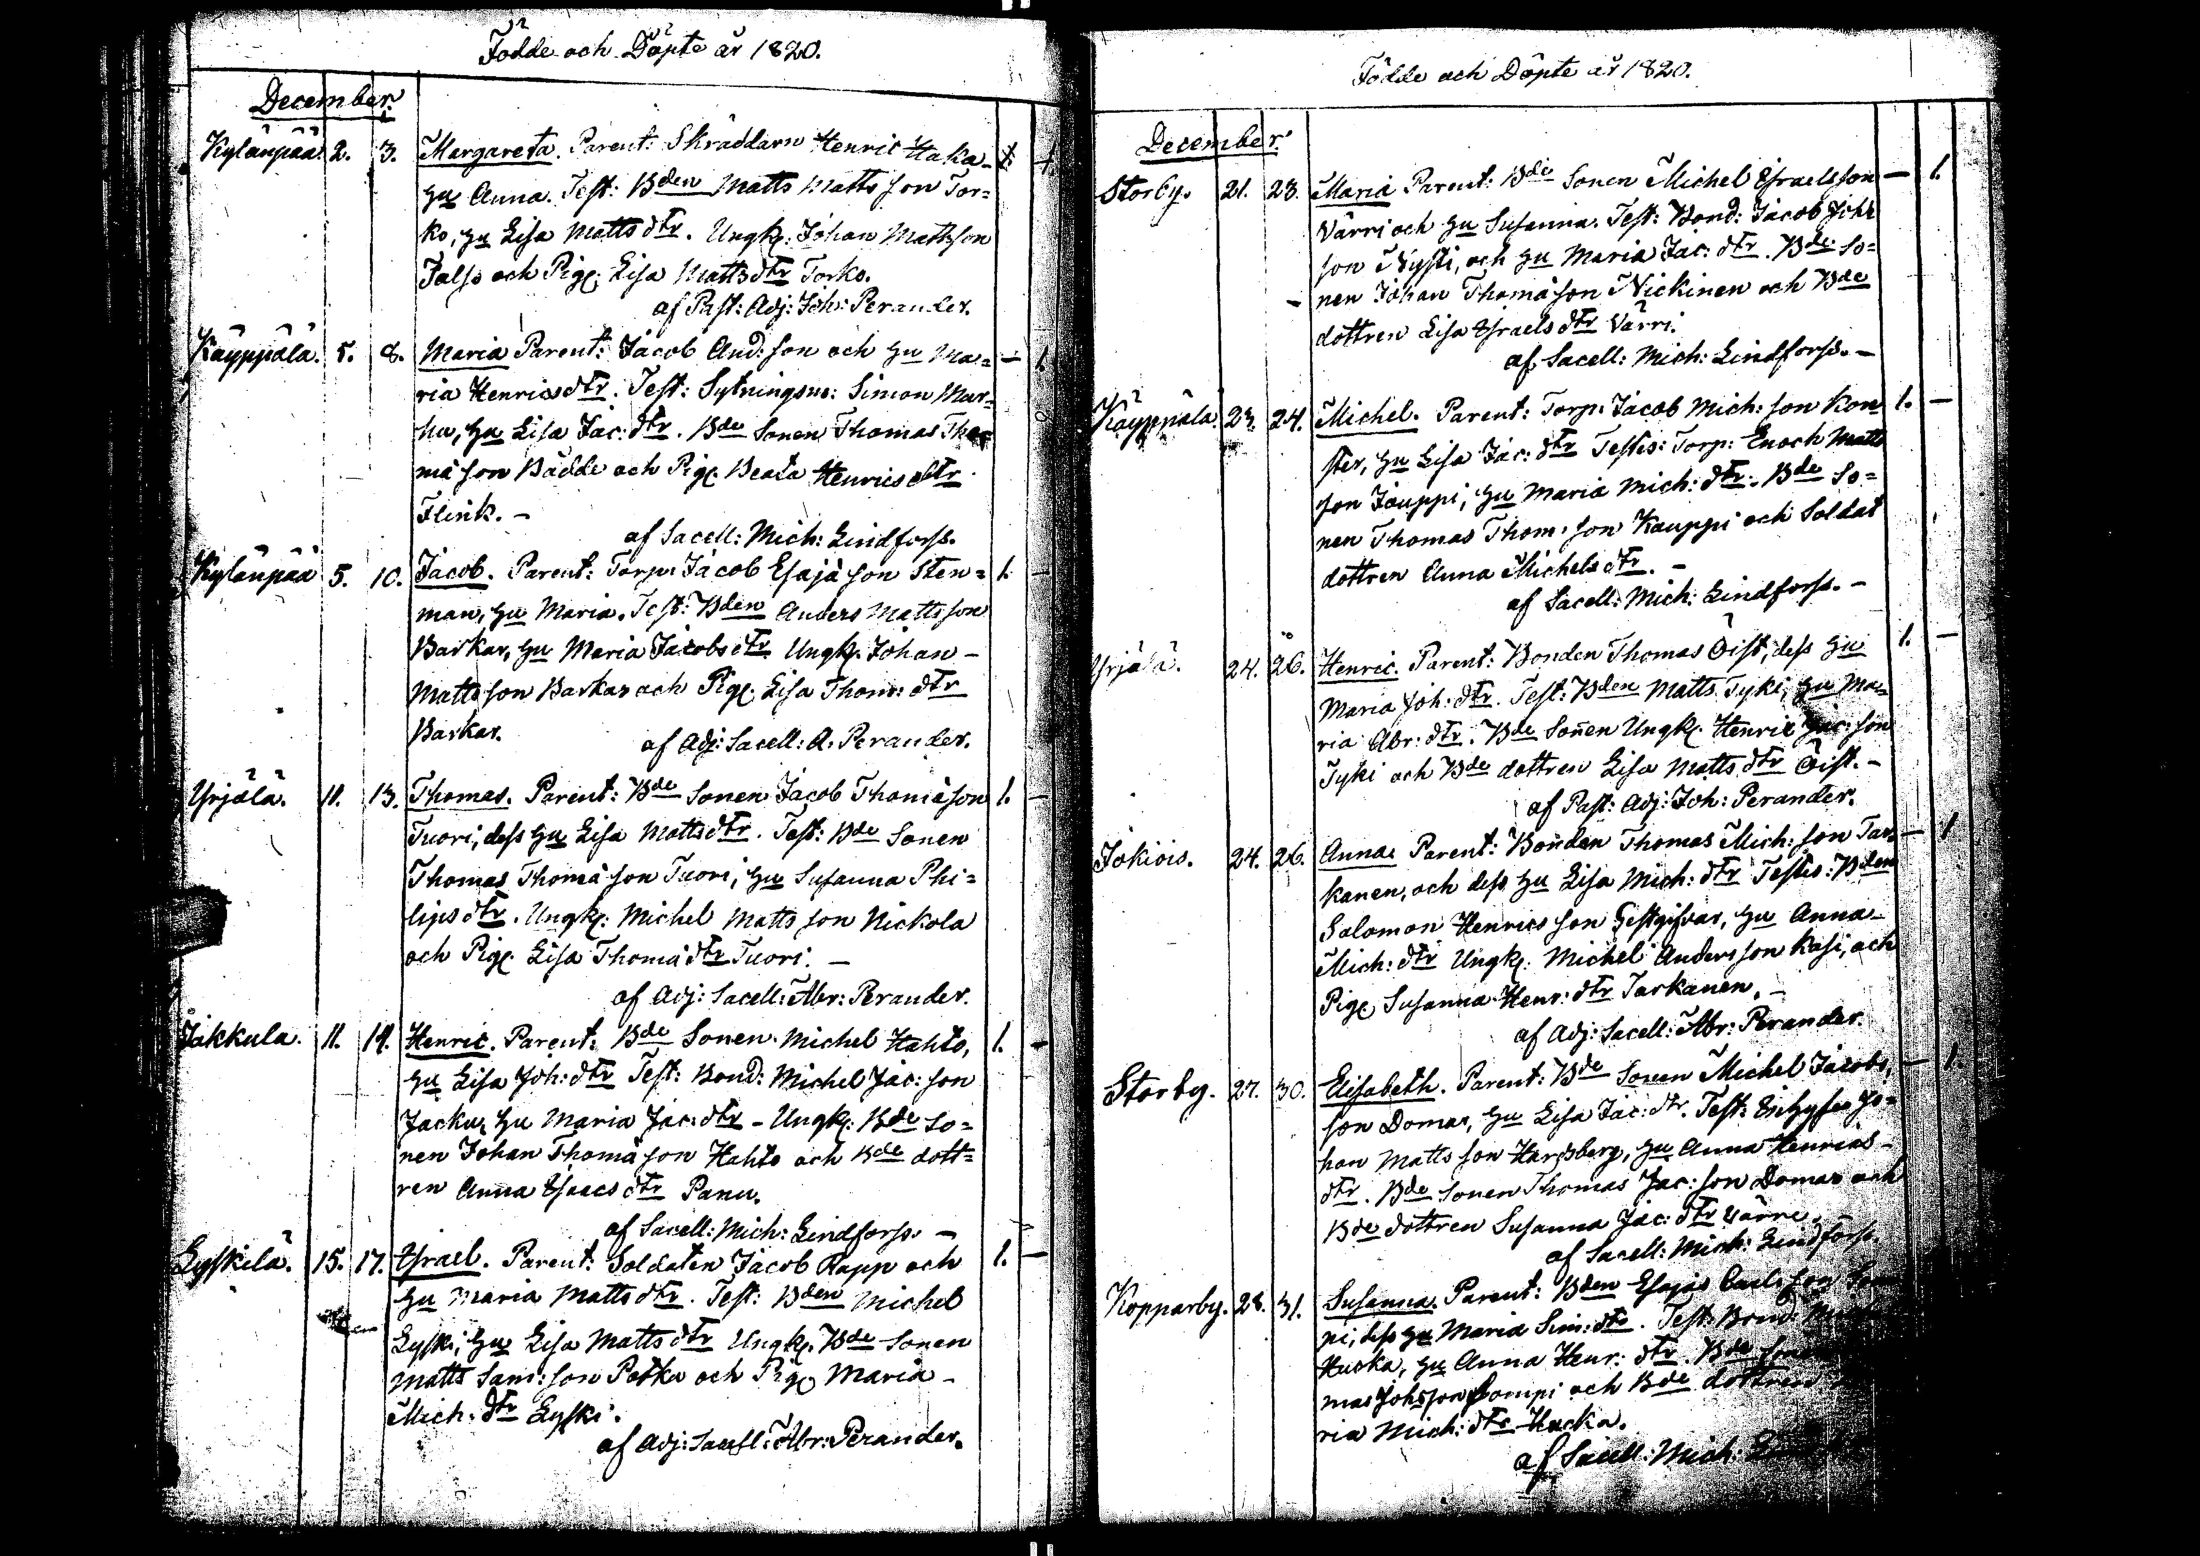 Födde och Döpte år 1820.
December.
Kyläupää. 2. 3. Margareta. Parent: Skräddarn Henric Haka-
hu Anna. Test: Bden Matts Matts son Tor=
ko, hu Lisa Matts dtr. Ungk: Johan Mattsson
Falss och Pig. Lisa Matts dtr Torko.
af Past: Adj: Joh: Perander.
Käyppälä. 5. 8. Maria Parent: Jacob And: son och hu Ma= — 1.
ria Henrics dtr. Test: Sytningsm: Simon Mar=
hu, hu Lisa Jac: dtr. Bde Sonen Thomas Tho
mä son Bädde och Pig. Beata Henrics dtr
Flink. —
af Sacell: Mich: Lindforss.
Kyläupää 5. 10. Jacob. Parent: Torp: Jacob Esajä son Sten= 1. —
man, hu Maria. Test: Bden Anders Matts son
Barkar, hu Maria Jacobs dtr Ungk. Johan —
Matts son Barkar och Pig. Lisa Thom: dtr
Barkar.
af Adj: Sacell: A. Perander.
Yrjälä. 11. 13. Thomas. Parent: Bde Sonen Jacob Thomäson 1. —
Tuori, dess hu Lisa Matts dtr. Test: Bde Sonen
Thomas Thomä son Tuori, hu Susanna Phi=
lips dtr. Ungk: Michel Matts son Nickola
och Pig. Lisa Thomä dtr Tuori. —
af Adj: Sacell: Abr: Perander.
Jakkula. 11. 14. Henric. Parent: Bde Sonen Michel Hahto, 1. —
hu Lisa Joh: dtr Test: Bond: Michel Jac: son
Jacku, hu Maria Jac: dtr — Ungk: Bde So=
nen Johan Thomä son Hahto och Bde dott=
ren Anna Isaacs dtr Panu.
af Sacell: Mich: Lindforss. —
Lyskilä. 15. 17. Israel. Parent: Soldaten Jacob Rapp och 1. —
hu Maria Matts dtr. Test: Bden Michel
Lyski, hu Lisa Matts dtr Ungk. Bde Sonen
Matts Sam: son Potka och Pig. Maria —
Mich: dtr Lyski.
af Adj: Sacell: Abr: Perander.
Födde och Döpte år 1820.
December.
Storby. 21. 23. Maria Parent: Bde Sonen Michel Israels son — 1.
Värri och hu Susanna. Test: Bond: Jacob Joh:
son Nysti, och hu Maria Jac: dtr. Bde So=
nen Johan Thomä son Nickinen och Bde
dottren Lisa Israels dtr Värri.
af Sacell: Mich: Lindforss. —
Käyppälä 23. 24. Michel. Parent: Torp: Jacob Mich: son Kon 1. —
ster, hu Lisa Jac: dtr Testes: Torp: Enoch Matts
son Jouppi, hu Maria Mich: dtr. Bde So=
nen Thomas Thom: son Kauppi och Soldat
dottren Anna Michels dtr. —
af Sacell: Mich: Lindforss. —
Yrjälä. 24. 26. Henric. Parent: Bonden Thomas Öist, dess hu 1. —
Maria Joh: dtr. Test: Bden Matts Tyki, hu Ma=
ria Abr: dtr. Bde Sonen Ungk. Henric Jac: son
Tyki och Bde dottren Lisa Matts dtr Öist. —
af Past: Adj: Joh: Perander.
Jokiois. 24. 26. Anna. Parent: Bonden Thomas Mich: son Tar= — 1
kanen, och dess hu Lisa Mich: dtr Testes: Bden
Salomon Henrics son Gestgifvar, hu Anna —
Mich: dtr Ungk: Michel Anders son Kasi, och
Pig. Susanna Henr: dtr Tarkanen. —
af Adj: Sacell: Abr: Perander.
Storby. 27. 30. Elisabeth. Parent: Bde Sonen Michel Jacobs — 1.
son Domar, hu Lisa Jac: dtr. Test: Jo=
han Matts son Harsberg, hu Anna Henrics —
dtr. Bde Sonen Thomas Jac: son Domar och
Bde dottren Susanna Jac: dtr Värre.
af Sacell: Mich: Lindforss.
Kopparby. 28. 31. Susanna. Parent: Bden Esajas Carls son
pi, dess hu Maria Sim: dtr. Test: Bond:
Hucka, hu Anna Henr: dtr. Bde
mas Johs son Sompi och Bde dottren
ria Mich: dtr Hucka.
af Sacell: Mich: